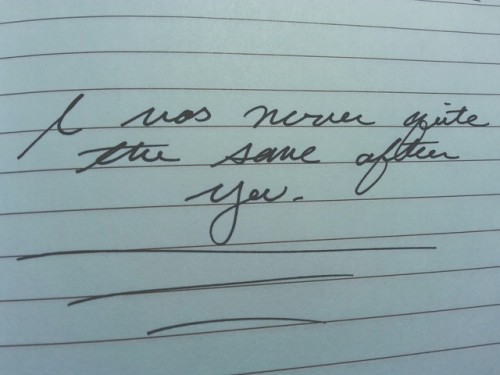 I was never quite
the same after
you.